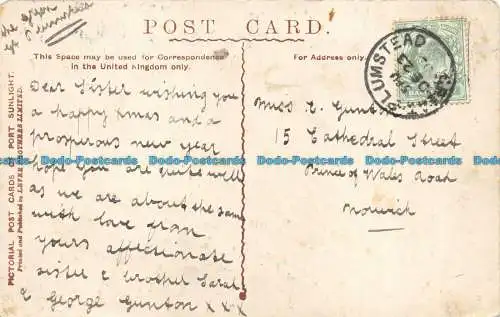 POST CARD.
This Space may be used for Correspondence
in the United Kingdom only.
For Address only.
PLUMSTEAD
PICTORIAL POST CARDS OF PORT SUNLIGHT.
Printed and Published by LEVER BROTHERS LIMITED.
Dear Sister wishing you
a happy xmas and a
prosperous new year
hope you are quite well
as we are about the same
with love from
yours affectionate
sister & brother Sarah
& George Gunton x x x
Miss E. Gunton
15 Cathedral Street
Prince of Wales Road
Norwich
Dodo-Postcards Dodo-Postcards Dodo-Postcards Dodo-Postcards Dodo-Postcards